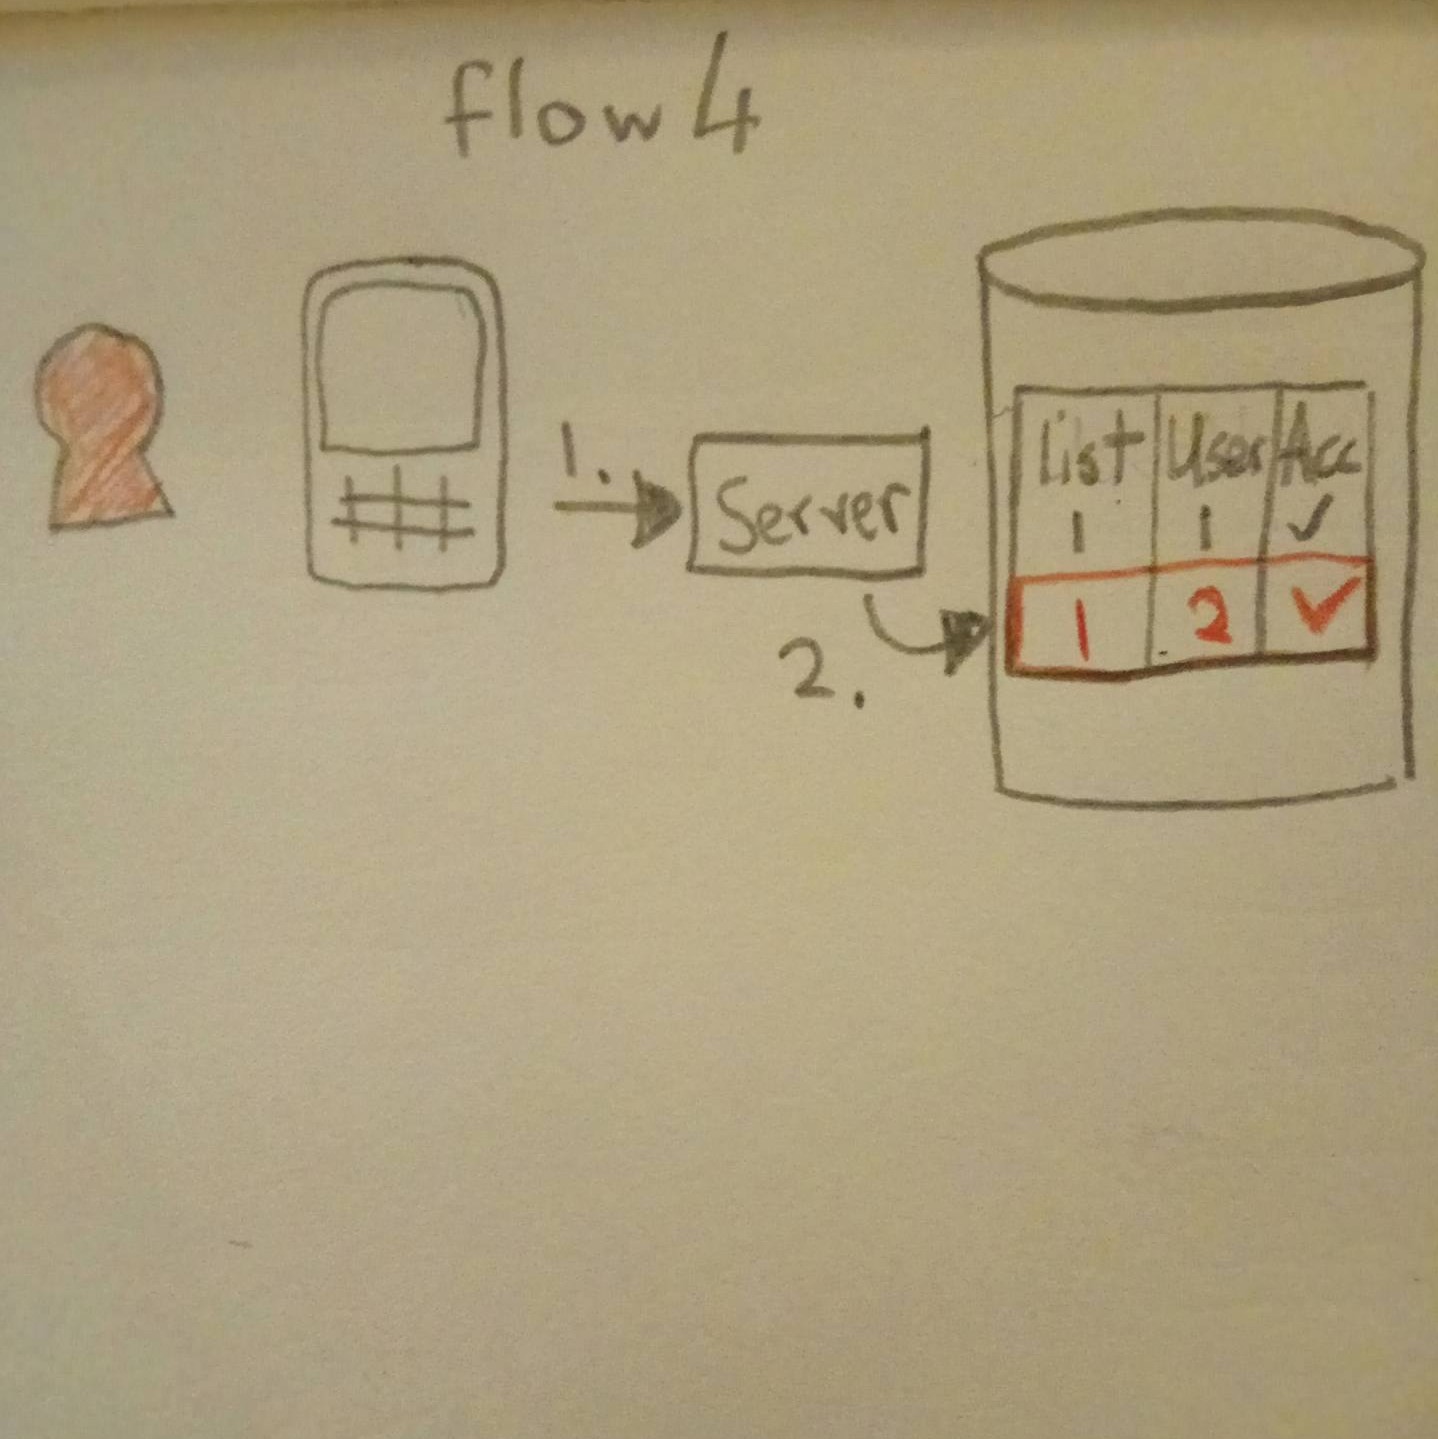 flow 4
1.
Server
2.
List User Acc
1 1 ✓
1 2 ✓